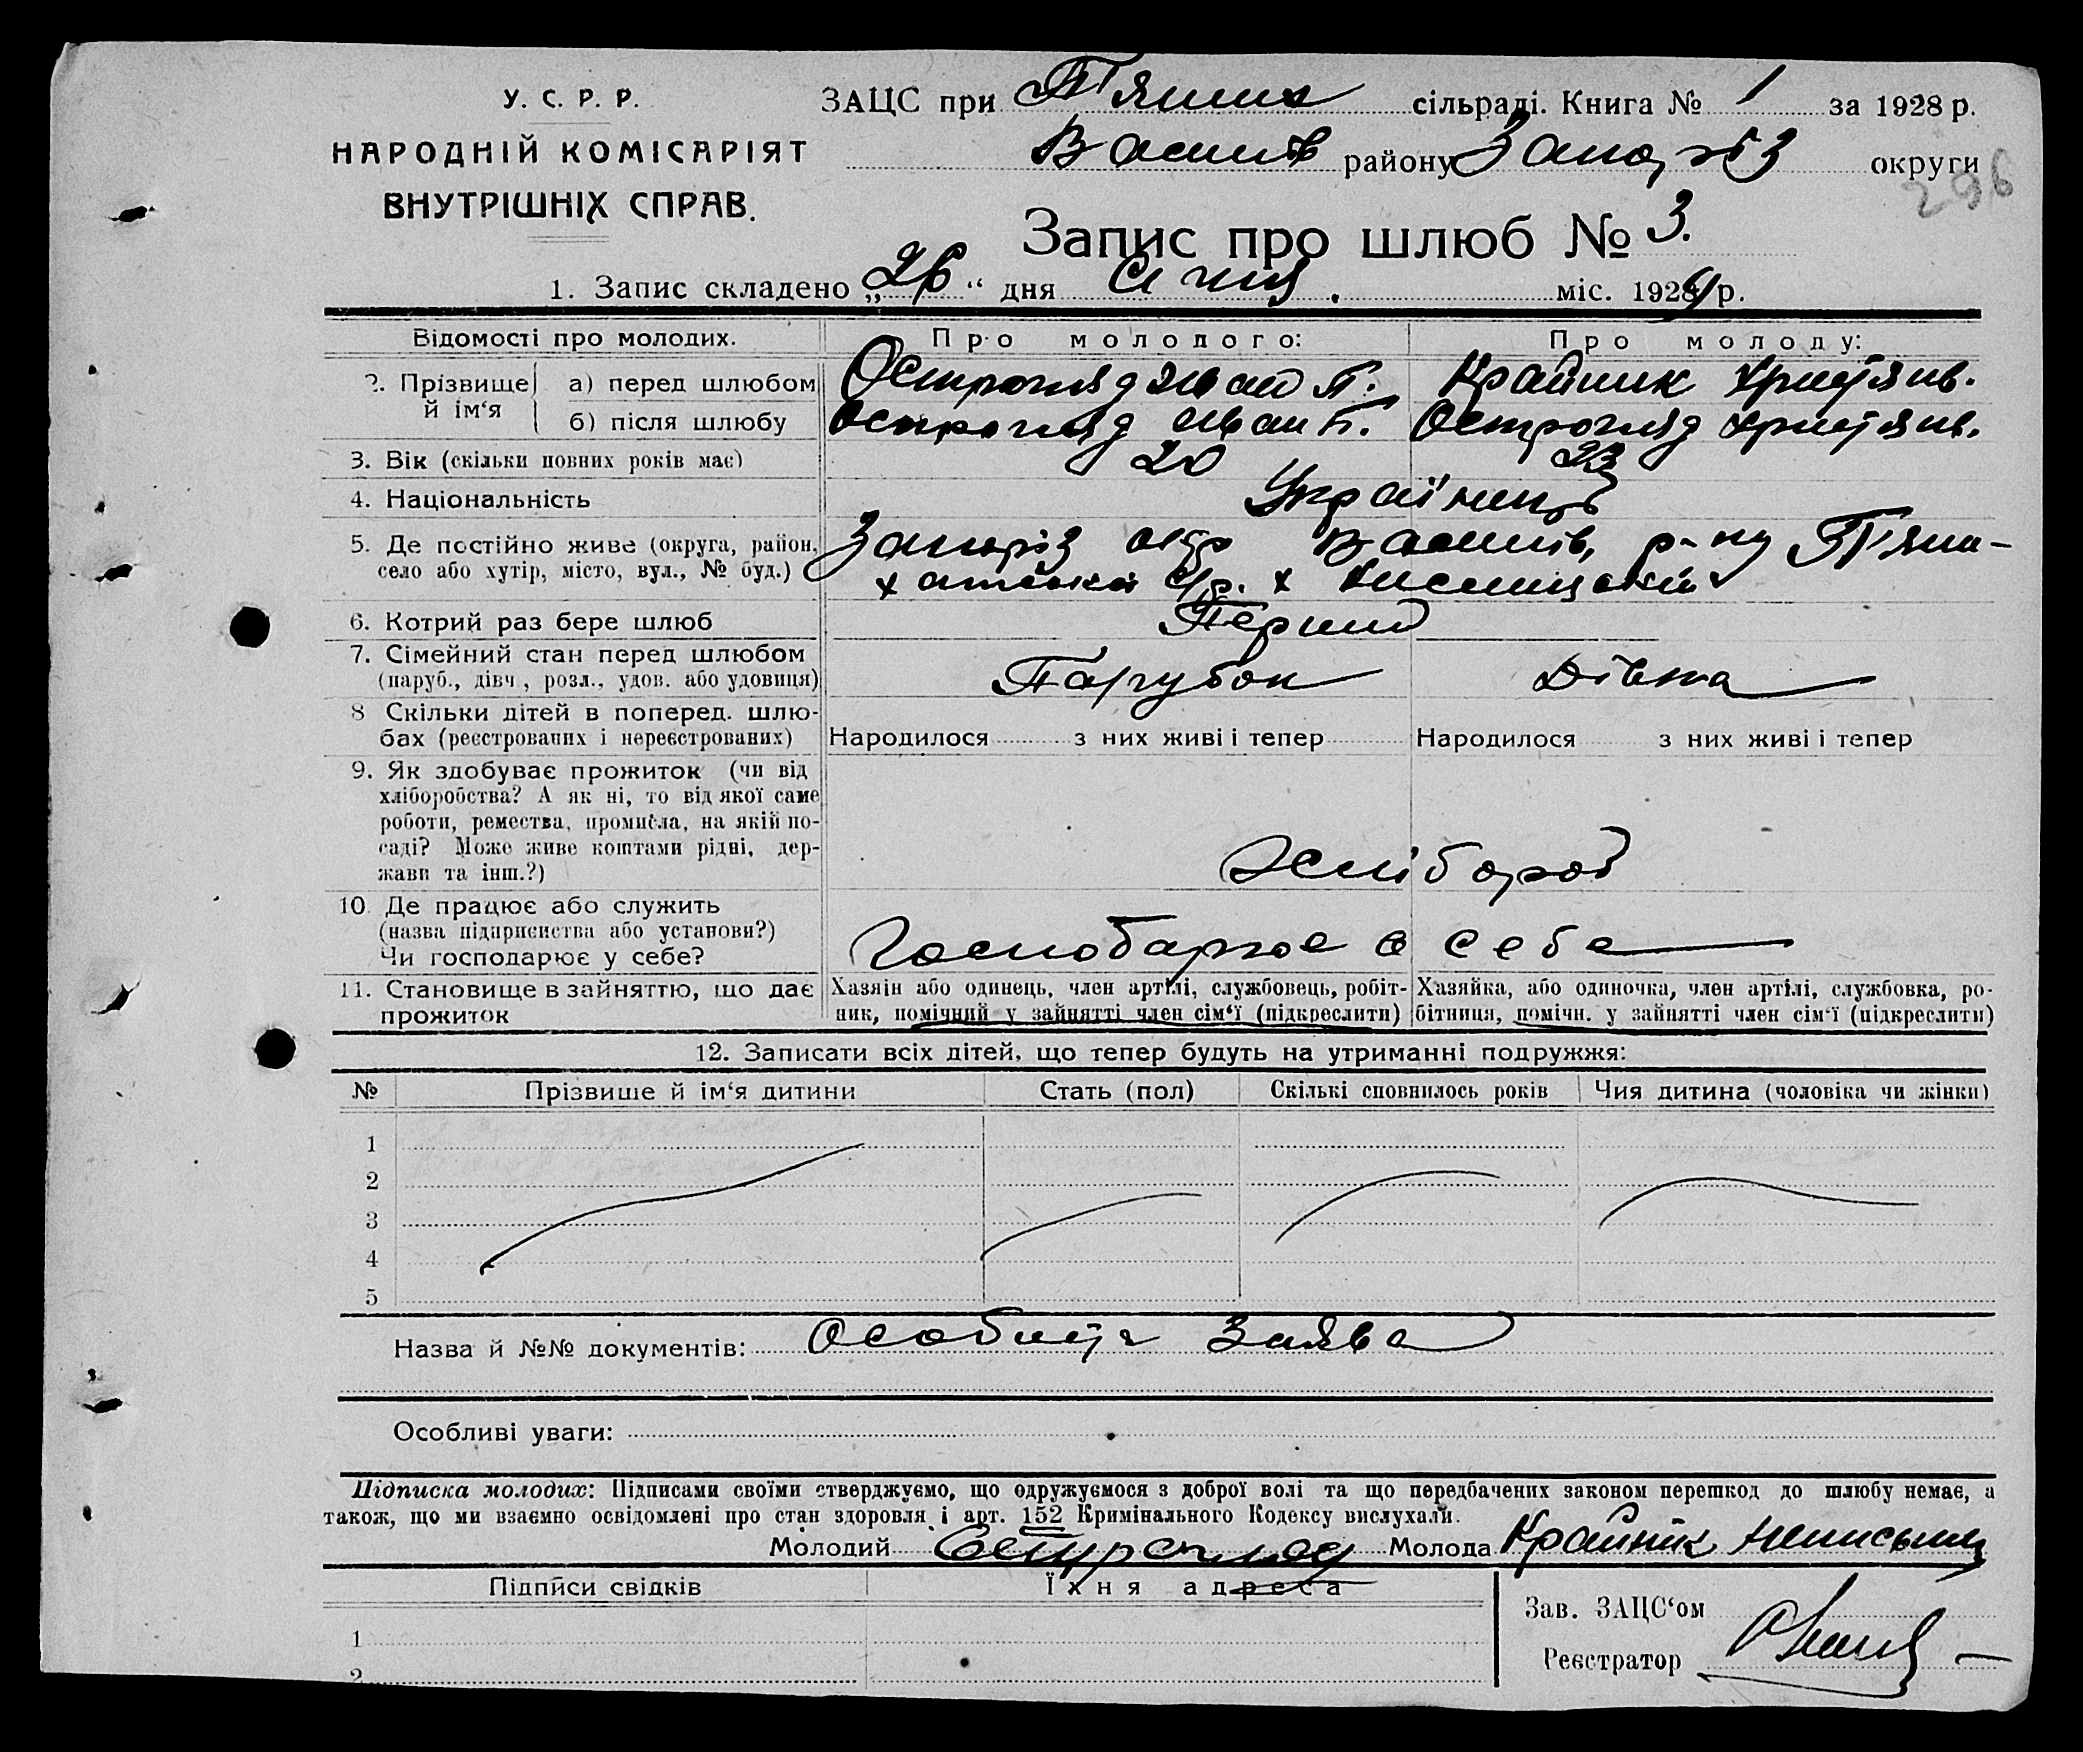 У. С. Р. Р.
НАРОДНІЙ КОМІСАРІЯТ
ВНУТРІШНІХ СПРАВ.
ЗАЦС при П'яших сільраді. Книга № 1 за 1928 р.
Василів району Запоріз округи
296
Запис про шлюб № 3.
1. Запис складено „26“ дня Січня. міс. 1929 р.
Відомості про молодих. Про молодого: Про молоду:
2. Прізвище й ім‘я а) перед шлюбом Острогляд Іван П. Крайник Христянв.
б) після шлюбу Острогляд Іван П. Острогляд Христянв.
3. Вік (скільки повних років має) 20 23
4. Національність Українці
5. Де постійно живе (округа, район, Запоріз окр Василів, р-ну П'яши-
село або хутір, місто, вул., № буд.) хатської с/р. х
6. Котрий раз бере шлюб Перший
7. Сімейний стан перед шлюбом Парубок Дівка
(паруб., дівч., розл., удов. або удовиця)
8 Скільки дітей в поперед. шлю-
бах (реєстрованих і нереєстрованих) Народилося з них живі і тепер Народилося з них живі і тепер
9. Як здобуває прожиток (чи від
хліборобства? А як ні, то від якої саме
роботи, ремества, промисла, на якій по-
саді? Може живе коштами рідні, дер-
жави та інш.?) Хлібороб
10. Де працює або служить
(назва підприємства або установи?)
Чи господарює у себе? Господарює в себе
11. Становище в зайняттю, що дає Хазяїн або одинець, член артілі, службовець, робіт- Хазяйка, або одиночка, член артілі, службовка, ро-
прожиток ник, помічний у зайнятті член сім‘ї (підкреслити) бітниця, помічн. у зайнятті член сім‘ї (підкреслити)
12. Записати всіх дітей, що тепер будуть на утриманні подружжя:
№ Прізвище й ім‘я дитини Стать (пол) Скількі сповнилось років Чия дитина (чоловіка чи жінки)
1
2
3
4
5
Назва й №№ документів: Особиста Заява
Особливі уваги:
Підписка молодих: Підписами своїми стверджуємо, що одружуємося з доброї волі та що передбачених законом перешкод до шлюбу немає, а
також, що ми взаємно освідомлені про стан здоровля і арт. 152 Кримінального Кодексу вислухали.
Молодий Острогляд Молода Крайник неписьмен
Підписи свідків Їхня адреса
Зав. ЗАЦС‘ом
1
Реєстратор
2